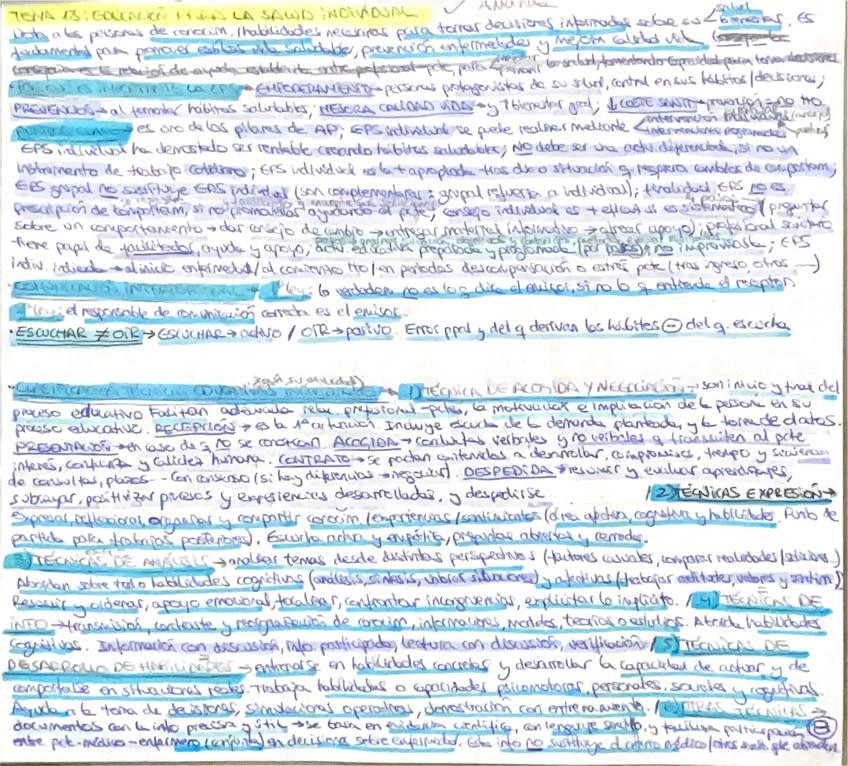 TEMA 13: EDUCACIÓN PARA LA SALUD INDIVIDUAL
Dota a las personas de conocim. /habilidades necesarias para tomar decisiones informadas sobre su salud bienestar. ES
fundamental para promover estilos vida saludables, prevención enfermedades y mejora calidad vida.
EMPODERAMIENTO → personas protagonistas de su salud, control en sus hábitos/decisiones;
PREVENCIÓN → al fomentar hábitos saludables; MEJORA CALIDAD VIDA → y ↑ bienestar gral; ↓ COSTE SANIT → prevención = no tto
es uno de los pilares de AP; EPS individual se puede realizar mediante
EPS individual ha demostrado ser rentable creando hábitos saludables; NO debe ser una activ diferenciada, si no un
instrumento de trabajo cotidiano; EPS individual es la + apropiada tras dx o situación q requiera cambios de comportam;
EPS grupal no sustituye EPS individual (son complementarias: grupal refuerza a individual); finalidad EPS no es
prescripción de comportam, si no promoverlos ayudando al pcte; consejo individual es + eficaz si es sistemático (preguntar
sobre un comportamiento → dar consejo de cambio → entregar material informativo → ofrecer apoyo); profesional sanitario
tiene papel de facilitador, ayuda y apoyo; activ educativa preparada y programada; no improvisada; EPS
indiv. indicada → al inicio enfermedad/al comienzo tto/en periodos descompensación o estrés pcte (tras ingreso, otros ...)
1ª ley: lo verdadero no es lo q dice el emisor, si no lo q entiende el receptor
2ª ley: el responsable de comunicación correcta es el emisor.
· ESCUCHAR ≠ OÍR → ESCUCHAR → activo / OÍR → pasivo. Error ppal y del q derivan los hábitos ⊖ del q. escucha
· CLASIFICACIÓN TÉCNICAS EDUCATIVAS 1) TÉCNICA DE ACOGIDA Y NEGOCIACIÓN → son inicio y final del
proceso educativo. Facilitan adecuada relac. profesional-pctes, la motivación e implicación de la persona en su
proceso educativo. RECEPCIÓN → es la 1ª actuación. Incluye escucha de la demanda planteada y la toma de datos.
PRESENTACIÓN → en caso de q no se conozcan. ACOGIDA → conductas verbales y no verbales q transmiten al pcte
interés, confianza y calidez humana. CONTRATO → se pactan contenidos a desarrollar, compromisos, tiempo y secuencia
de consultas, plazos... Con consenso (si hay diferencias → negociar) DESPEDIDA → resumir y evaluar aprendizajes,
subrayar, positivizar procesos y experiencias desarrolladas, y despedirse. / 2) TÉCNICAS EXPRESIÓN →
Expresar, reflexionar, organizar y compartir conocim /experiencias /sentimientos (área afectiva, cognitiva y habilidades. Punto de
partida para trabajos posteriores). Escucha activa y empática, preguntas abiertas y cerradas.
3) TÉCNICAS DE ANÁLISIS → analizar temas desde distintas perspectivas (factores causales, comparar realidades/soluciones.)
Abordan sobre todo habilidades cognitivas (análisis, síntesis, varias situaciones) y afectivas (trabajar actitudes, valores y sentim)
Resumir y ordenar, apoyo emocional, focalizar, confrontar incongruencias, explicitar lo implícito. / 4) TÉCNICAS DE
INFO → transmisión, contraste y reorganización de conocim, informaciones, modelos, teorías o estudios. Aborda habilidades
cognitivas. Información con discusión, info participada, lectura con discusión, verificación / 5) TÉCNICAS DE
DESARROLLO DE HABILIDADES → entrenarse en habilidades concretas y desarrollar la capacidad de actuar y de
comportarse en situaciones reales. Trabaja habilidades o capacidades psicomotoras, personales, sociales y cognitivas.
Ayuda a la toma de decisiones, simulaciones operativas, demostración con entrenamiento. / 6) OTRAS TÉCNICAS →
documentos con la info precisa y útil → se basa en evidencia científica, con lenguaje sencillo, y facilita participación
entre pcte-médico-enfermero (conjunta) en decisiones sobre enfermedad. Esta info no sustituye el criterio médico/otros sanit. que atiendan